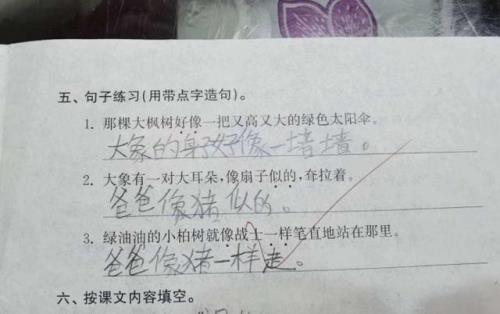 五、句子练习(用带点字造句)。
1. 那棵大枫树好像一把又高又大的绿色太阳伞。
大象的身子好像一堵墙。
2. 大象有一对大耳朵,像扇子似的,耷拉着。
爸爸像猪似的。
3. 绿油油的小柏树就像战士一样笔直地站在那里。
爸爸像猪一样走。
六、按课文内容填空。